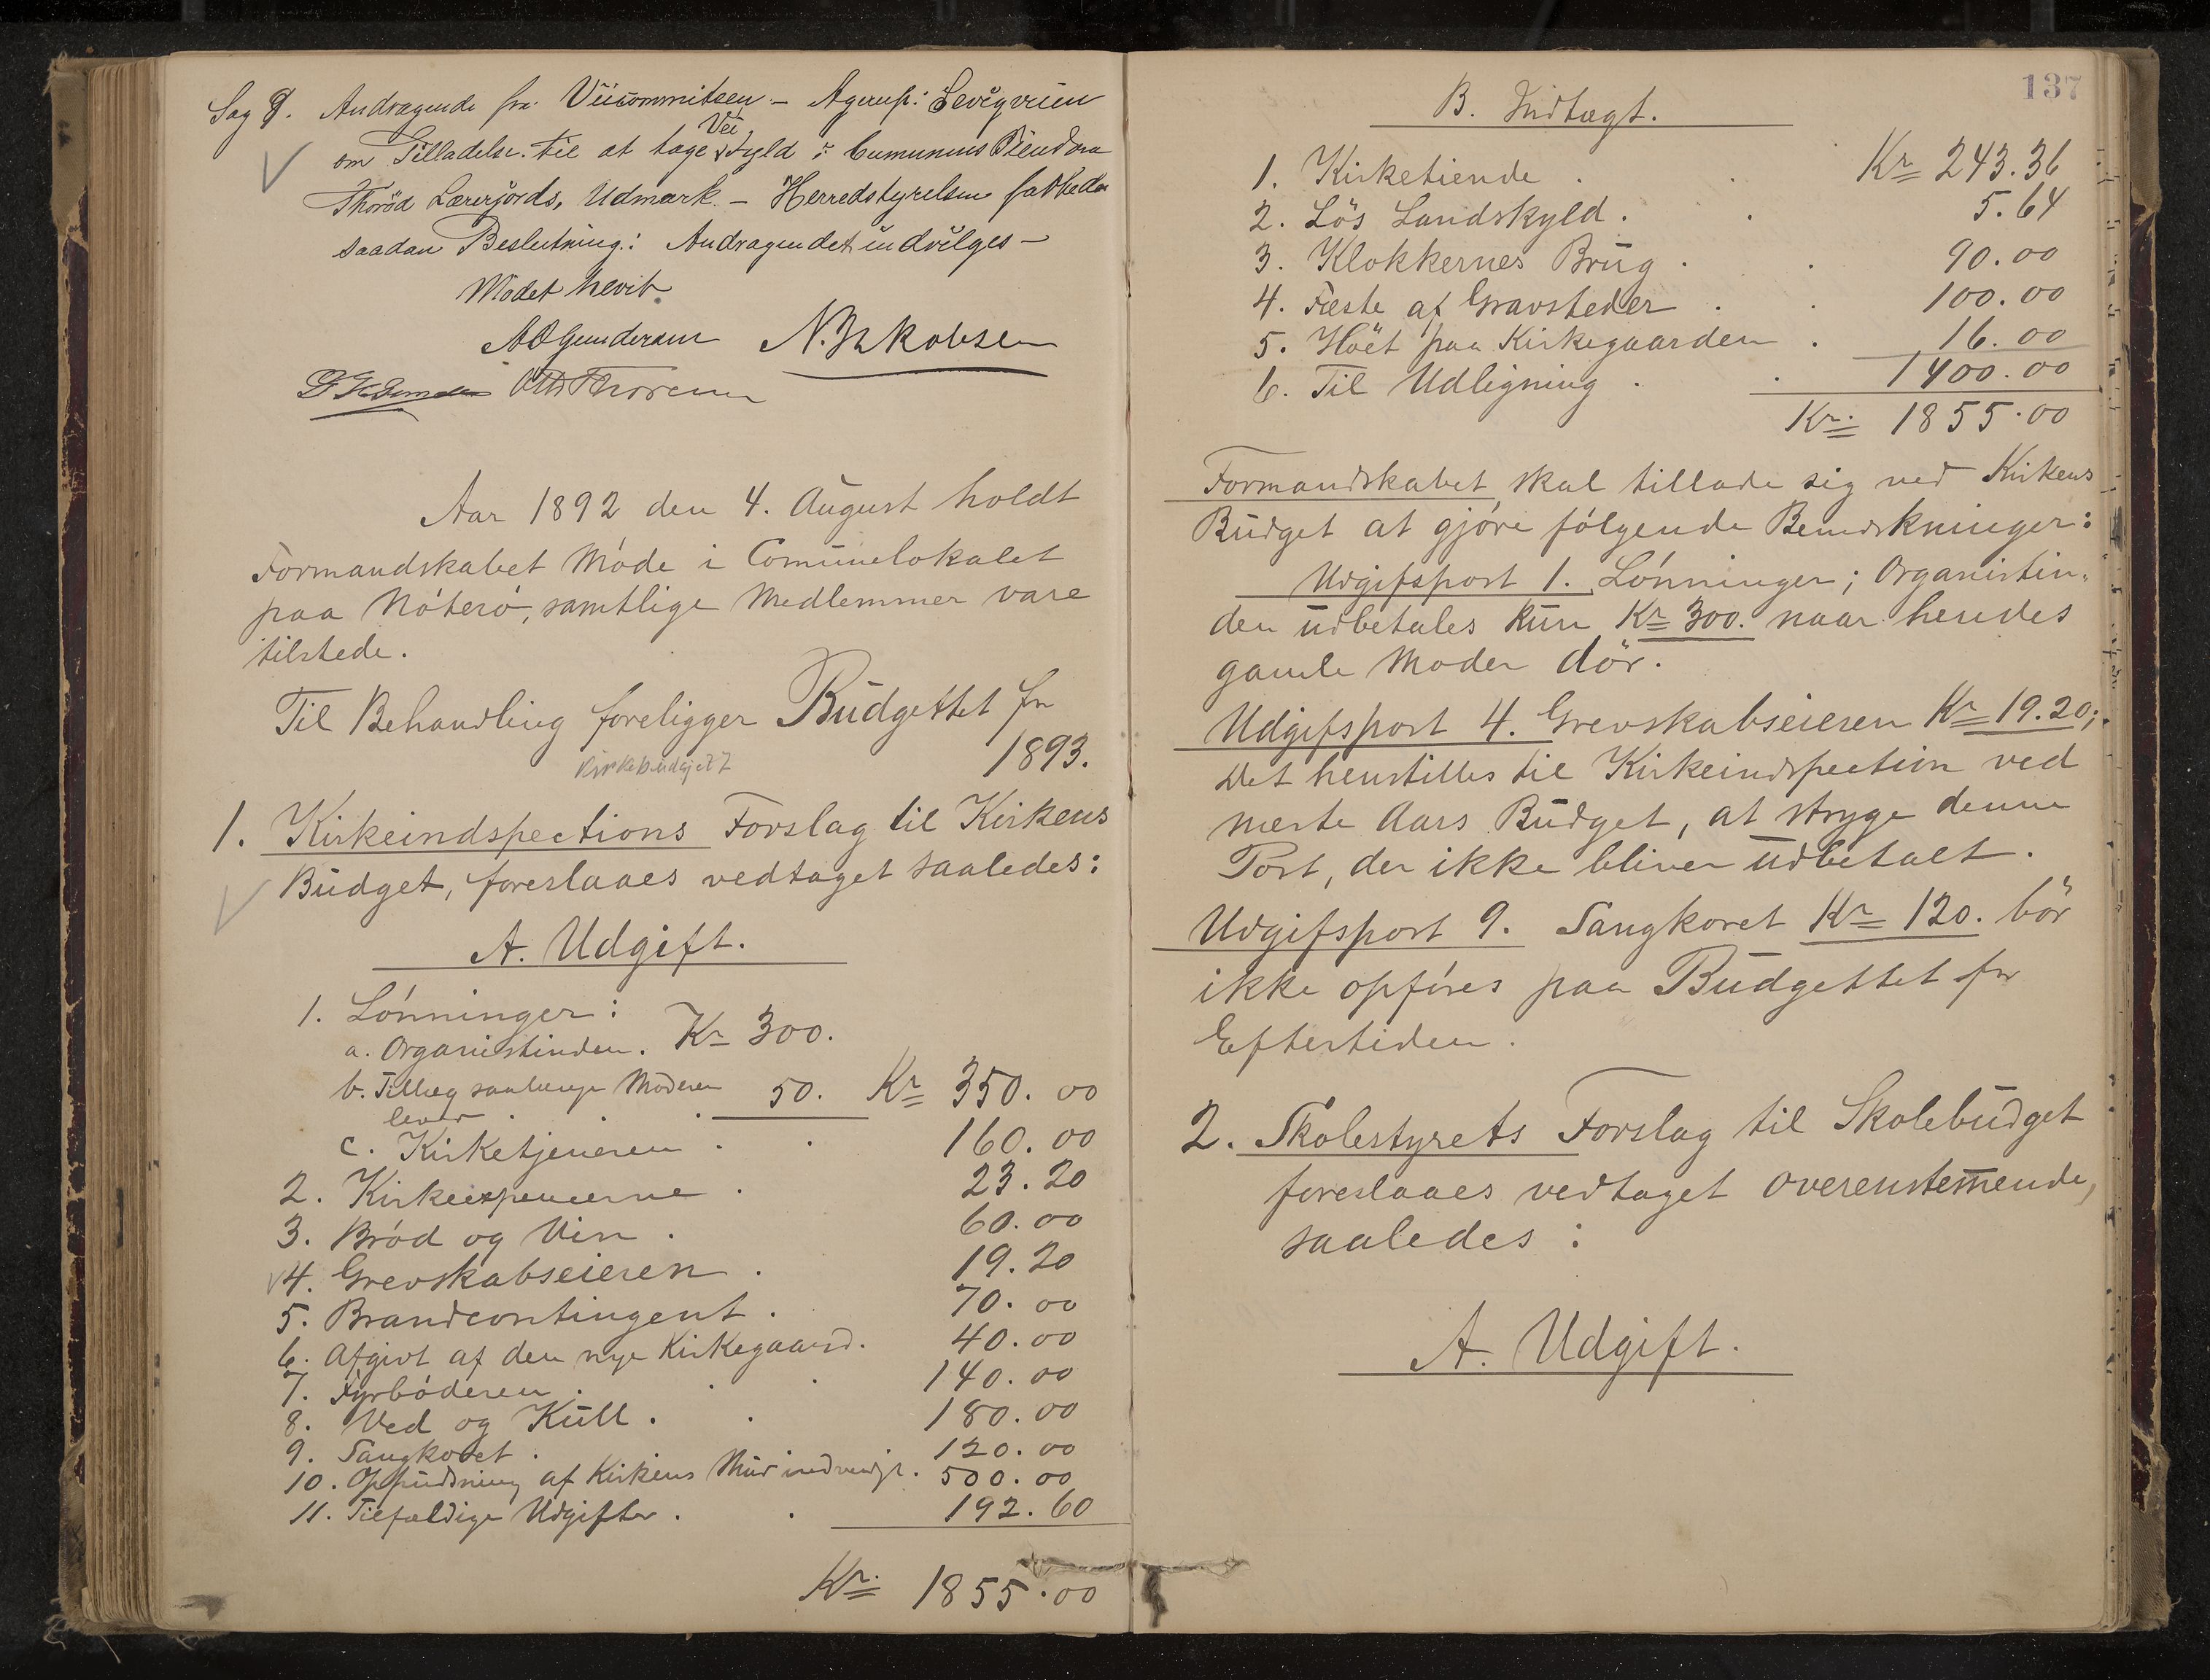 Sag 9. Andragende fra Veicommitsen – Agerup: Levigveien
om Tilladelse til at tage Vei Fyld i Comunens Eiendom
Thoröd Lærerjords, Udmark. – Herredstyrelsen fattede
saadan Beslutning: Andragendet indvilges –
Mödet hevet
A O Gundersen N. Jakobsen
Otto Thorsen
Aar 1892 den 4. August holdt
Formandskabet Möde i Comunelokalet
paa Nöterö, samtlige Medlemmer vare
tilstede.
Til Behandling foreligger Budgettet for
1893.
Kirkebudgjett
1. Kirkeindspections Forslag til Kirkens
Budget, foreslaaes vedtaget saaledes:
A. Udgift.
1. Lönninger:
a. Organistinden. Kr 300.
b. Tillæg saalænge Moderen
lever 50. Kr 350.00
c. Kirketjeneren . . 160.00
2. Kirkeexpencerne . 23.20
3. Bröd og Vin . 60.00
4. Grevskabseieren . 19.20
5. Brandcontingent . 70.00
6. Afgivt af den nye Kirkegaard. 40.00
7. Fyrböderen . . . 140.00
8. Ved og Kull . . 180.00
9. Sangkoret . 120.00
10. Oppudsning af Kirkens Mur indvendigt. 500.00
11. Tilfældige Udgifter . . 192.60
Kr. 1855.00
137
B. Indtægt.
1. Kirketiende . . Kr 243.36
2. Lös Landskyld . . 5.64
3. Klokkernes Brug . . 90.00
4. Fæste af Gravsteder . . 100.00
5. Höet paa Kirkegaarden . 16.00
6. Til Udligning . . 1400.00
Kr. 1855.00
Formandskabet skal tillade sig ved Kirkens
Budget at gjöre fölgende Bemerkninger:
Udgifspost 1. Lönninger; Organistin-
den udbetales kun Kr 300. naar hendes
gamle Moder dör.
Udgifspost 4. Grevskabseieren Kr 19.20;
Det henstilles til Kirkeindspection ved
næste Aars Budget, at stryge denne
Post, der ikke bliver udbetalt.
Udgifspost 9. Sangkoret Kr 120. bör
ikke opföres paa Budgettet for
Eftertiden.
2. Skolestyrets Forslag til Skolebudget
foreslaaes vedtaget overenstemende,
saaledes:
A. Udgift.